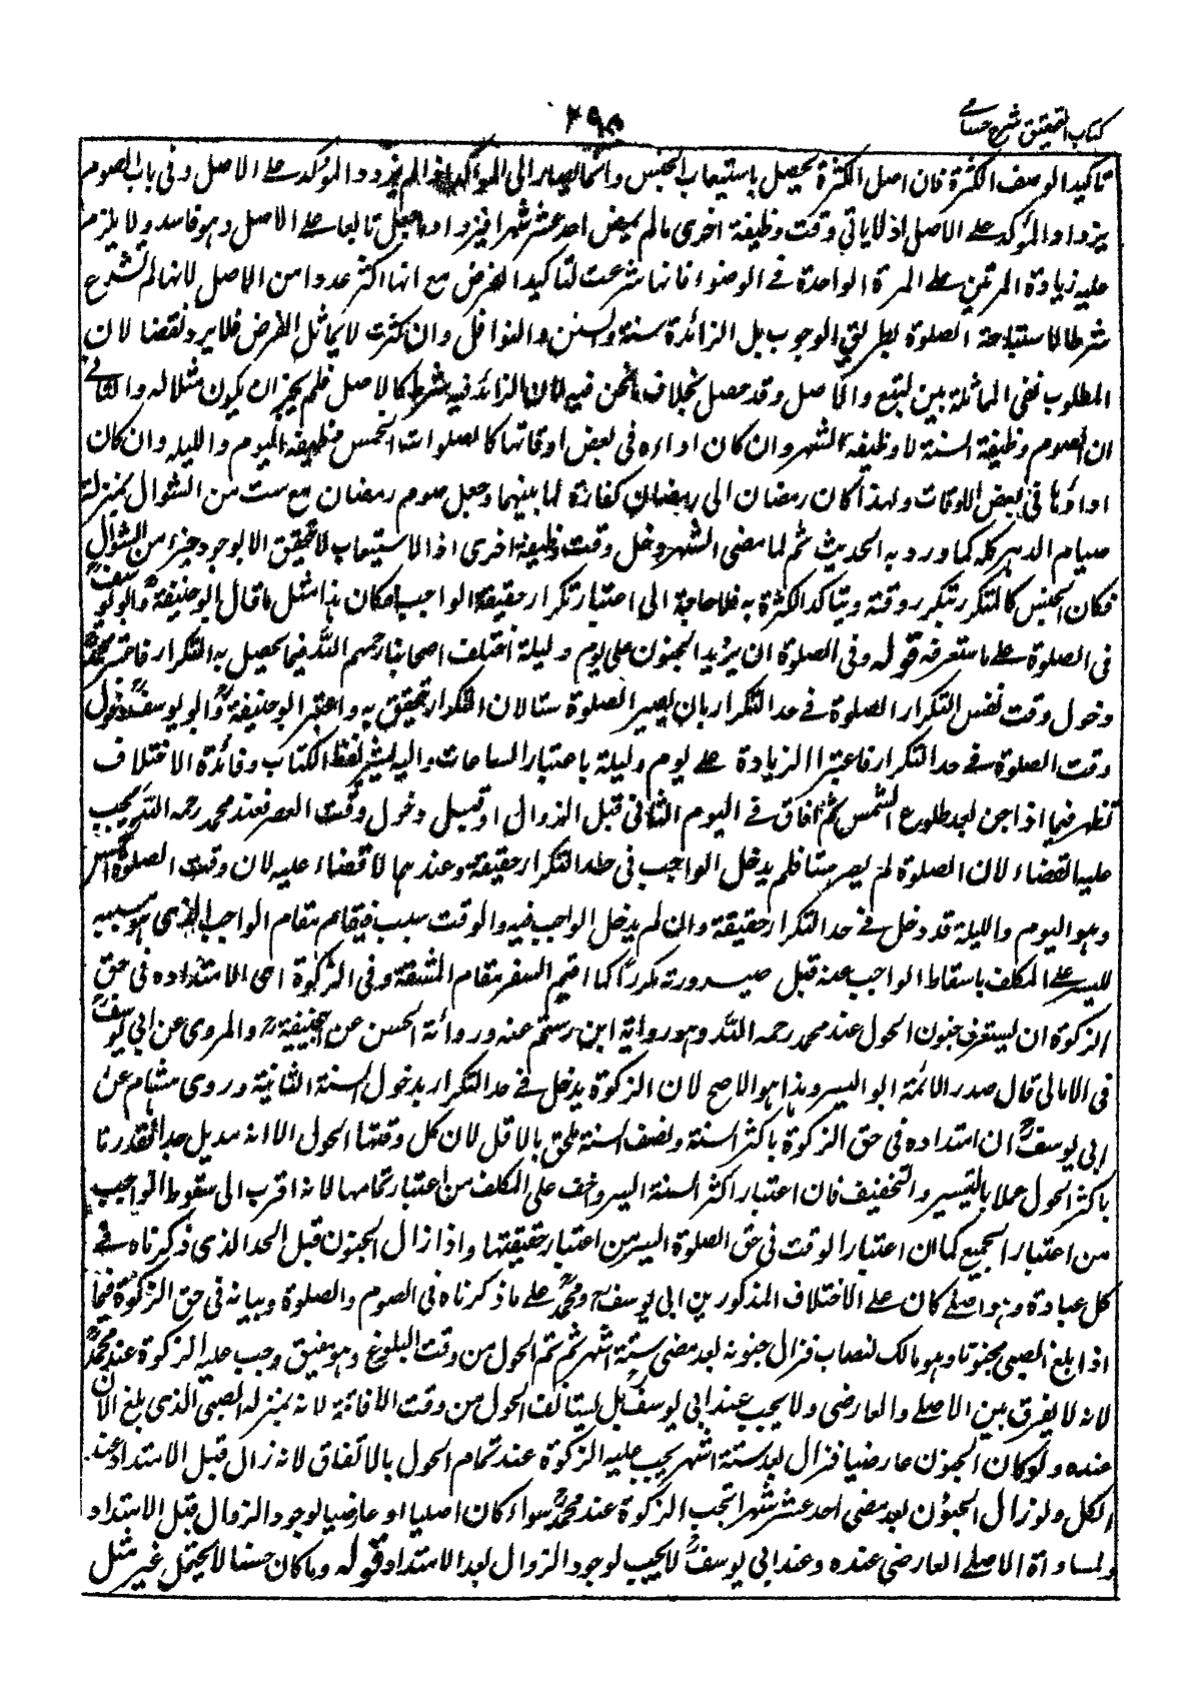 كتاب التحقيق شرح حسامي
٢٩٥
تاكيدا لوصف الكثرة فان اصل الكثرة يحصل باستيعاب الجنس وانما يصار الى المؤكد اذا لم يزدد المؤكد على الاصل وفى باب الصوم
يزداد المؤكد على الاصل اذ لا ياتى وقت وظيفة اخرى مالم يمض احد عشر شهرا فيزداد ما جعل تابعا على الاصل وهو فاسد ولا يلزم
عليه زيادة المرتين على المرة الواحدة فى الوضوء فانها شرعت لتاكيد الفرض مع انها اكثر عددا من الاصل لانها لم تشرع
شرطا لاستباحة الصلوة بطريق الوجوب بل الزائدة سنة والسنن والنوافل وان كثرت لا يماثل الفرض فلا يرد نقضا لان
المطلوب نفى المماثلة بين التبع والاصل وقد حصل بخلاف ما نحن فيه لان الزائد فيه شرط كالاصل فلم يجز ان يكون مثلا له والثانى
ان الصوم وظيفة السنة لا وظيفة الشهر وان كان اداؤه فى بعض اوقاتها كالصلوات الخمس وظيفة اليوم والليلة وان كان
اداؤها فى بعض الاوقات ولهذا كان رمضان الى رمضان كفارة لما بينهما وجعل صوم رمضان مع ست من الشوال بمنزلة
صيام الدهر كله كما ورد به الحديث ثم لما مضى الشهر دخل وقت وظيفة اخرى اذ الاستيعاب لا يتحقق الا بوجود جزء من الشوال
فكان الجنس كالمتكرر بتكرر وقته ويتاكد الكثرة به فلا حاجة الى اعتبار تكرار حقيقة الواجب فكان هذا مثل ما قال ابو حنيفة وابو يوسف
فى الصلوة على ما ستعرفه قوله وفى الصلوة ان يزيد الجنون على يوم وليلة اختلف اصحابنا رحمهم الله فيما يحصل به التكرار فاعتبر محمد
دخول وقت نفس التكرار الصلوة فى حد التكرار بان يصير الصلوة ستا لان التكرار يتحقق به واعتبر ابو حنيفة وابو يوسف دخول
وقت الصلوة فى حد التكرار فاعتبرا الزيادة على يوم وليلة باعتبار الساعات واليه يشير لفظ الكتاب وفائدة الاختلاف
تظهر فيما اذا جن بعد طلوع الشمس ثم افاق فى اليوم الثانى قبل الزوال او قبيل دخول وقت العصر فعند محمد رحمه الله يجب
عليه القضاء لان الصلوة لم يصر ستا فلم يدخل الواجب فى حد التكرار حقيقة وعندهما لا قضاء عليه لان وقت الصلوة الخمس
وهو اليوم والليلة قد دخل فى حد التكرار حقيقة وان لم يدخل الواجب فيه والوقت سبب فيقام مقام الواجب الذى هو سببه
لليسر على المكلف باسقاط الواجب عنه قبل صيرورته مكررا كما اقيم السفر مقام المشقة وفى الزكوة اى الامتداد فى حق
الزكوة ان يستغرق جنون الحول عند محمد رحمه الله وهو رواية ابن رستم عنه ورواية الحسن عن ابى حنيفة والمروى عن ابى يوسف
فى الامالى قال صدر الائمة ابو اليسر وهذا هو الاصح لان الزكوة يدخل فى حد التكرار بدخول السنة الثانية وروى هشام عن
ابى يوسف ان امتداده فى حق الزكوة باكثر السنة ونصف السنة ملحق بالاقل لان كل وقتها الحول الا انه مديل جدا فقدرنا
باكثر الحول عملا بالتيسير والتخفيف فان اعتبار اكثر السنة ايسر واخف على المكلف من اعتبار تمامها لانه اقرب الى سقوط الواجب
من اعتبار الجميع كما ان اعتبار الوقت فى حق الصلوة ايسر من اعتبار حقيقتها واذا زال الجنون قبل الحد الذى ذكرناه فى
كل عبادة وهو اصلى كان على الاختلاف المذكور بين ابى يوسف ومحمد على ما ذكرناه فى الصوم والصلوة وبيانه فى حق الزكوة فيما
اذا بلغ الصبى مجنونا وهو مالك لنصاب فزال جنونه بعد مضى ستة اشهر ثم تم الحول من وقت البلوغ وهو مفيق وجب عليه الزكوة عند محمد
لانه لا يفرق بين الاصلى والعارضى ولا يجب عند ابى يوسف بل يستانف الحول من وقت الافاقة لانه بمنزلة الصبى الذى بلغ الان
عنده ولو كان الجنون عارضيا فزال بعد ستة اشهر يجب عليه الزكوة عند تمام الحول بالاتفاق لانه زال قبل الامتداد عند
الكل ولو زال الجنون بعد مضى احد عشر شهرا تجب الزكوة عند محمد سواء كان اصليا او عارضيا لوجود الزوال قبل الامتداد
ولمساواة الاصلى العارضى عنده وعند ابى يوسف لا يجب لوجود الزوال بعد الامتداد قوله وما كان حسنا لا يحتمل غير مثل